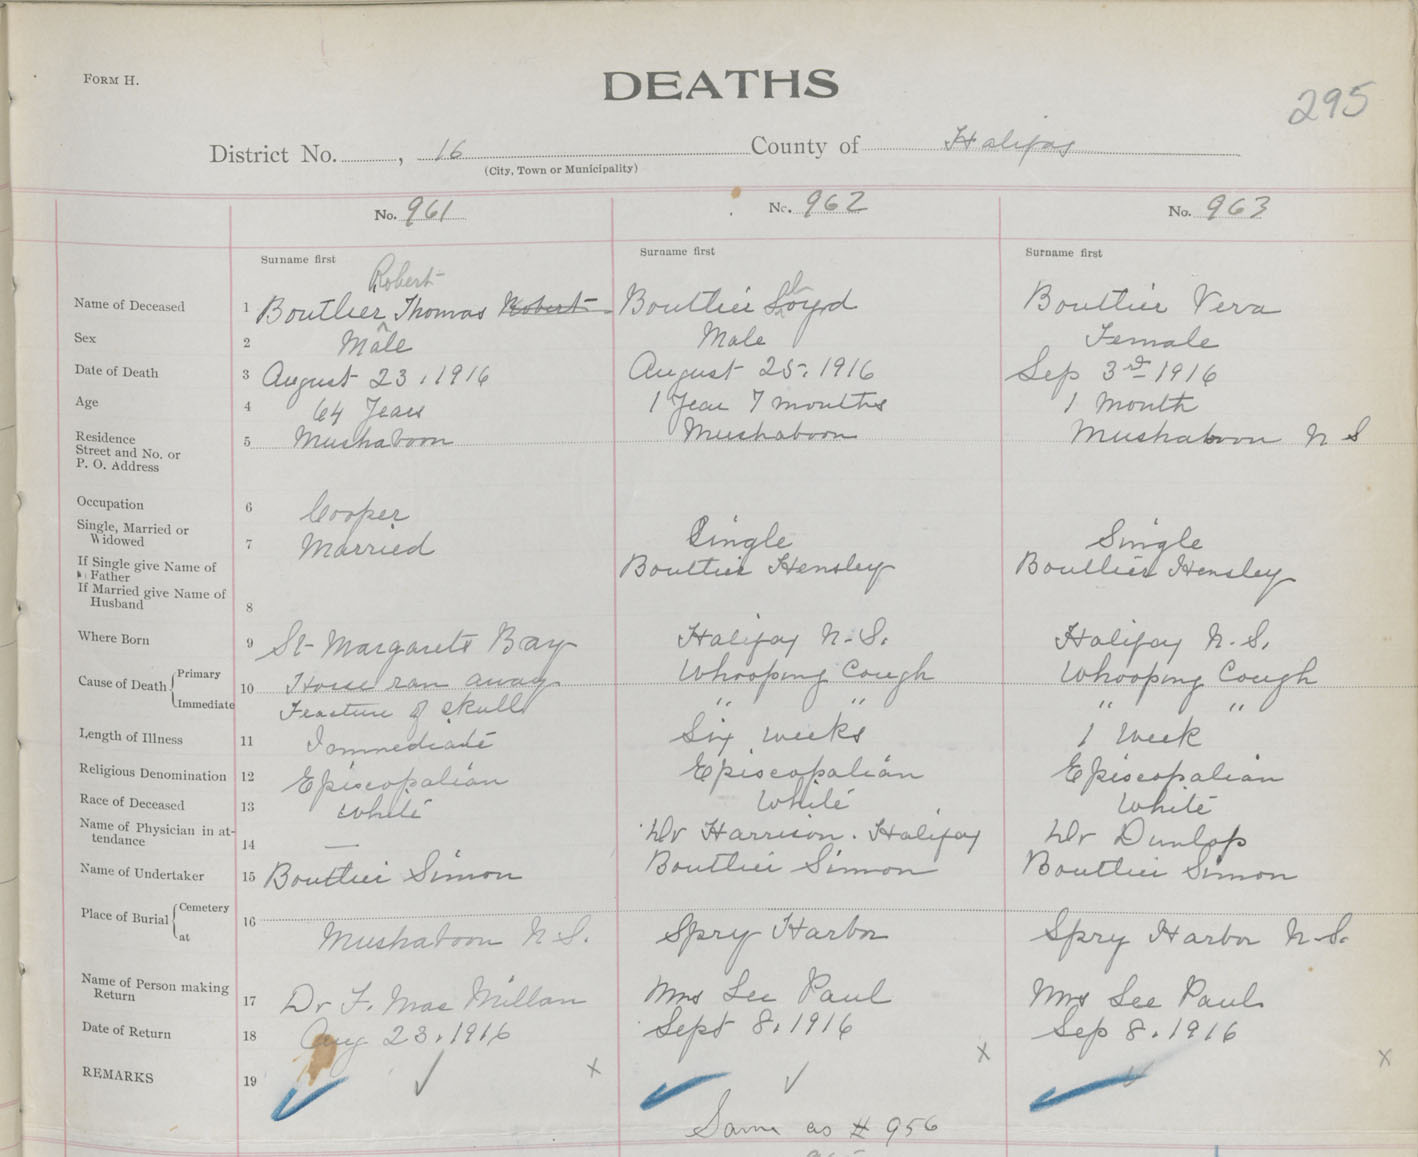 FORM H.
DEATHS
295
District No. , 16 County of Halifax
(City, Town or Municipality)
No. 961 No. 962 No. 963
Surname first Surname first Surname first
Robert
Name of Deceased 1 Boutlier Thomas Robert Boutlier Lloyd Boutlier Vera
Sex 2 Male Male Female
Date of Death 3 August 23, 1916 August 25, 1916 Sep 3rd 1916
Age 4 64 Years 1 Year 7 months 1 Month
Residence
Street and No. or
P. O. Address 5 Mushaboon Mushaboon Mushaboon N S
Occupation 6 Cooper
Single, Married or
Widowed 7 Married Single Single
If Single give Name of
Father Boutlier Hensley Boutlier Hensley
If Married give Name of
Husband 8
Where Born 9 St Margarets Bay Halifax N.S. Halifax N.S.
Cause of Death Primary 10 Horse ran away Whooping Cough Whooping Cough
Immediate Fracture of Skull " " " "
Length of Illness 11 Immediate Six weeks 1 Week
Religious Denomination 12 Episcopalian Episcopalian Episcopalian
Race of Deceased 13 White White White
Name of Physician in at-
tendance 14 — Dr Harrison. Halifax Dr Dunlop
Name of Undertaker 15 Boutlier Simon Boutlier Simon Boutlier Simon
Place of Burial Cemetery 16
at Mushaboon N.S. Spry Harbor Spry Harbor N.S.
Name of Person making
Return 17 Dr F. Mac Millan Mrs Lee Paul Mrs Lee Paul
Date of Return 18 Aug 23, 1916 Sept 8, 1916 Sep 8, 1916
REMARKS 19 ✓ ✓ x ✓ ✓ x ✓ ✓ x
Same as # 956